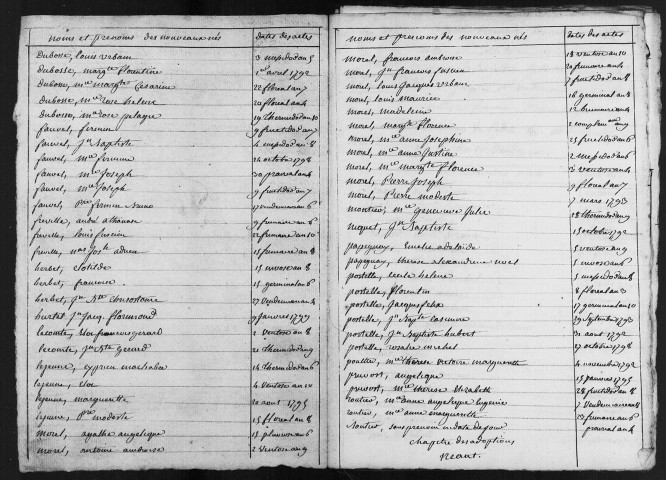 noms et prenoms des nouveaux nés dates des actes
Dubosse, louis urbain 3 messidor an 5
Dubosse, margte florentine 1er avril 1792
Dubosse, mie margte Cesarine 22 floreal an 7
Dubosse, mie rose helene 20 floreal an 4
Dubosse, mie rose pelagie 19 thermidor an 10
fauvel, firmin 9 fructidor an 7
fauvel, jn Baptiste 4 messidor an 6
fauvel, mie firmine 24 octobre 1792
fauvel, mie Joseph 30 prairial an 4
fauvel, mie Joseph 9 fructidor an 7
fauvel, pre firmin 17 vendemiaire an 6
freville, aubé athanase 9 frimaire an 6
freville, louis lucien 22 frimaire an 10
freville, nas josh adrien 15 frimaire an 8
herbet, Clotilde 15 nivose an 8
herbet, francoise 15 germinal an 6
herbet, jn Bte chrisostome 27 vendemiaire an
hurtel jn jacq. florimond 9 janvier 1793
lecomte, francois gerard 2 ventose an 8
lecomte, jn Bte gerard 21 thermidor an 9
lejeune, cyprien machabée 14 thermidor an 6
lejeune, eloi 4 ventose an 10
lejeune, marguerite 10 aout 1793
lejeune, pre modeste 15 floreal an 8
morel, agathe angelique 13 pluviose an 6
morel, antoine ambroise 2 ventose an 9
noms et prenoms des nouveaux nés dates des actes
morel, francois ambroise 18 ventose an 10
morel, jn francois lucien 20 frimaire an
morel, louis jacques urbain 7 fructidor an 8
morel, louis maurice 16 germinal an 8
morel, madeleine 12 brumaire an
morel, margte florence 2 complemre an 9
morel, mie anne josephine 25 fructidor an 6
morel, mie anne justine 2 messidor an 6
morel, mie margte florence 3 ventose an 6
morel, Pierre Joseph 9 floreal an 7
morel, Pierre modeste 7 mars 1793
montier, mie genevieve Julie 18 thermidor an 9
naquet, jn Baptiste 15 octobre 1792
papegnay, Emelie adelaide 5 ventose an 9
papegnay, therese alexandrine noel 5 nivose an 6
portelle, cecile helene 5 messidor an 8
portelle, florentin 8 floreal an 3
portelle, jacques felix 17 germinal an 10
portelle, jn Bapte casimire 29 septembre 1793
portelle, jn Baptiste hubert 31 aout 1792
portelle, rosalie michel 27 octobre 1792
poultier, mie therese victoire marguerite 4 novembre 1792
prevost, angelique 15 janvier 1793
prevost, mie therese Elizabeth 28 fructidor an 8
routier, mie anne angelique eugenie 7 vendemiaire an 8
routier, mie anne marguerite 23 frimaire an 6
routier, sans prenom ni date de jour prairial an 4
Chapitre des adoptions
Neant.